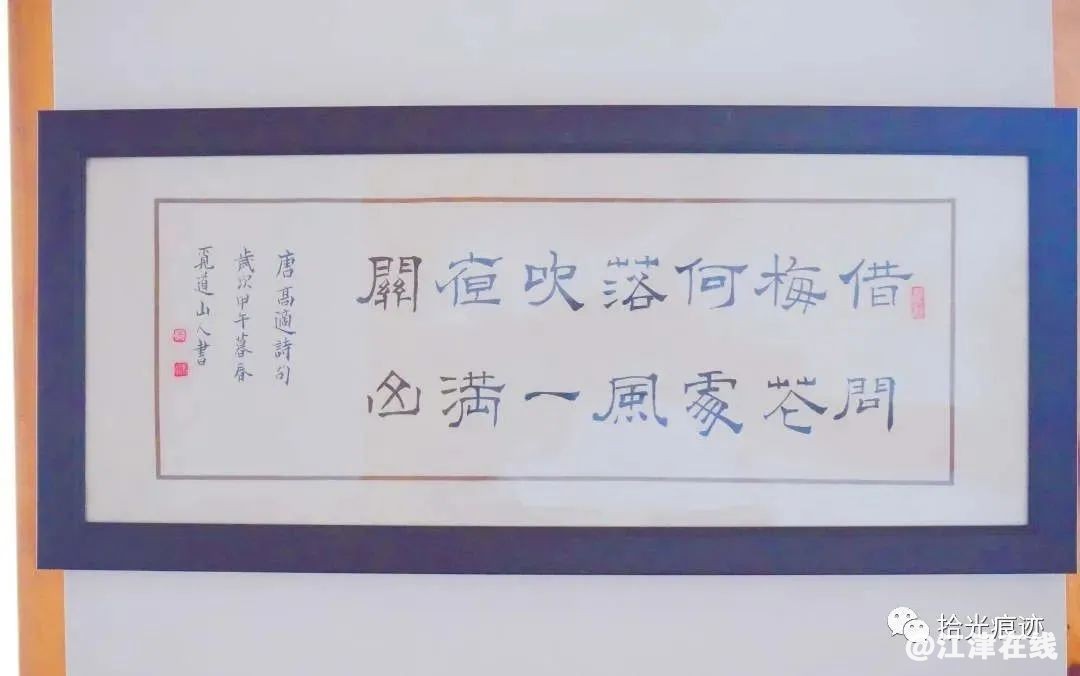 借問
梅花
何處
落風
吹一
夜満
關山
唐高適詩句
歲次甲午暮春
覓道山人書
拾光痕迹
@江津在线